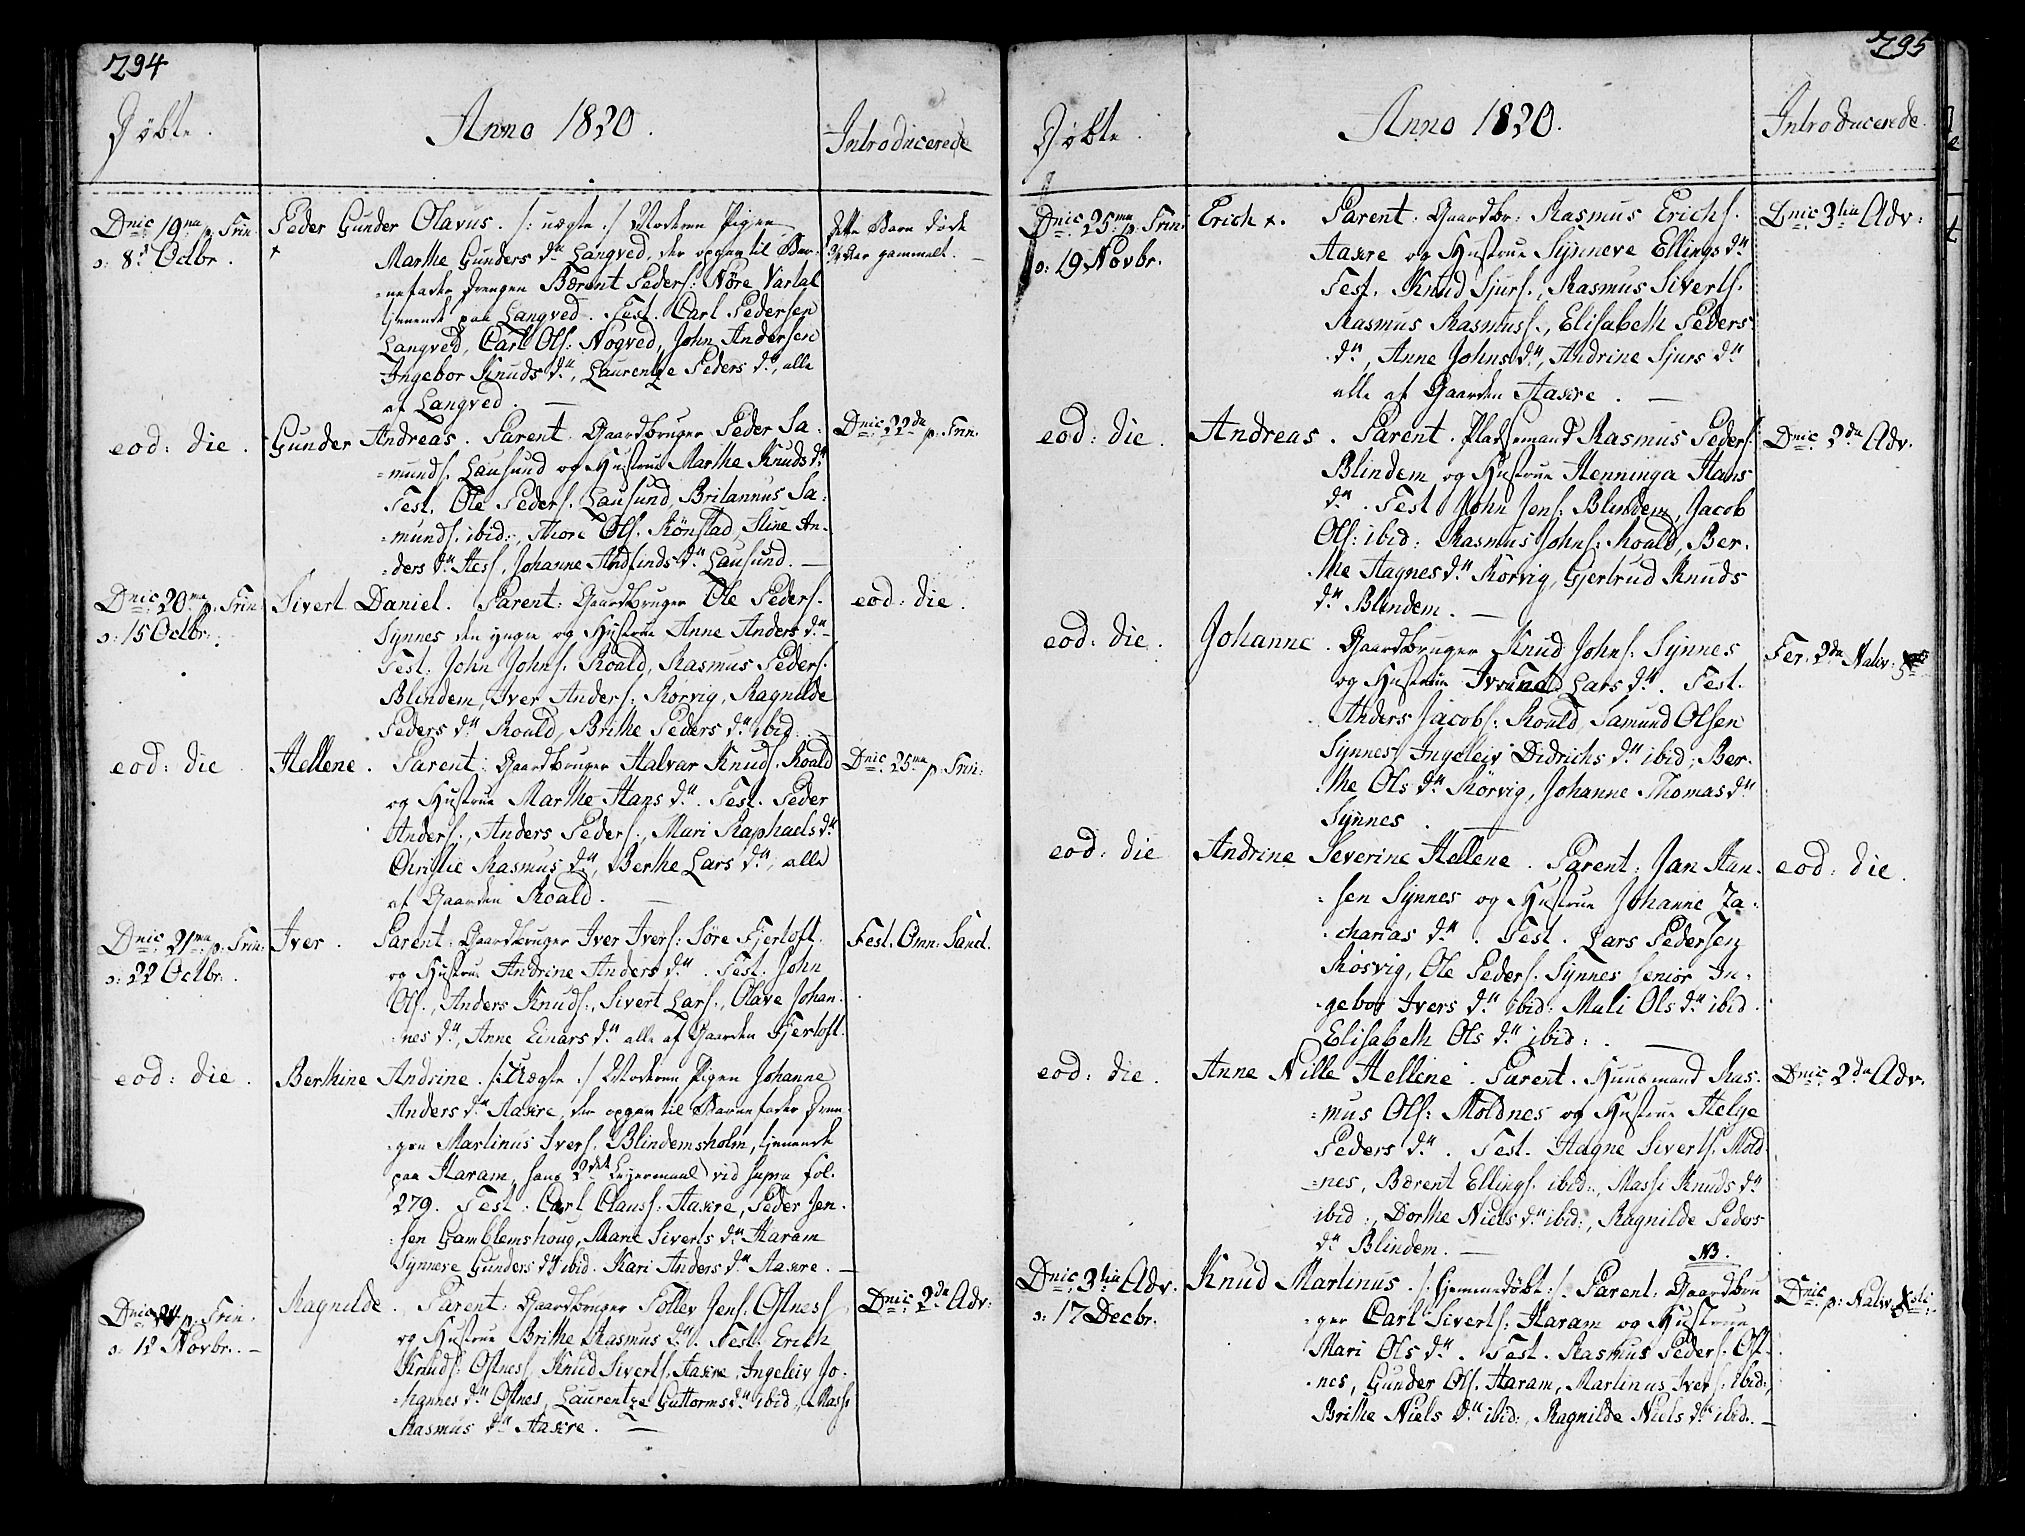 294
Døbte.
Anno 1820.
Introducerede
Dnic: 19na p. Trin:
ɔ: 8de Octbr.
Peder Gunder Olavus. /: uægte :/ Moderen Pigen
Marthe Gunders dtr Langved, der opgav til Bar-
=nefader Drengen Bærent Peders: Nøre Vartal
tjenende paa Langved. Test. Carl Pedersen
Langved, Carl Ols: Nogved, John Andersen
Ingebor Knuds dtr, Laurentze Peders dtr, alle
af Langved.
dette Barn døde
gammelt.
eod: die.
Gunder Andreas. Parent: Gaardbruger Peder Sa-
=munds. Lausund og Hustrue Marthe Knuds dtr
Test. Ole Peders. Lausund, Britannus Sa-
=munds. ibid:, Thore Ols. Rønstad, Stine An-
=ders dtr Hess, Johanne Andfinds dtr Lausund.
Dnic: 22da p. Trin.
Dnic: 20ma p. Trin
ɔ: 15 Octbr.
Sivert Daniel. Parent: Gaardbruger Ole Peders.
Synnes den yngre og Hustrue Anne Anders dtr
Test: John Johns. Roald, Rasmus Peders.
Blindem, Iver Anders: Rørvig, Ragnilde
Peders dtr Roald, Brithe Peders dtr ibid.
eod: die.
eod: die
Hellene. Parent: Gaardbruger Halvar Knuds. Roald
og Hustrue Marthe Hans dtr. Test. Peder
Anders., Anders Peders., Mari Raphaels dtr
Christie Rasmus dtr, Berthe Lars dtr, alle
af Gaarden Roald.
Dnic: 25ma p: Trin:
Dnic: 21ma p. Trin:
ɔ: 22 Octbr.
Iver. Parent: Gaardbruger Iver Ivers: Søre Fjertoft
og Hustrue Andrine Anders dtr. Test: John
Ols., Anders Knuds., Sivert Lars., Olave Johan-
=nes dtr, Anne Einars dtr alle af Gaarden Fjertoft.
Fest. Omn: Sanct.
eod: die.
Berthine Andrine. /: Uægte :/ Moderen Pigen Johanne
Anders dtr Aasire, der opgav til Barnefader Dren-
=gen Martinus Ivers. Blindemsholm, tjenende
paa Haram, hans 2det Leiermaal vid supra fol.
279. Test: Carl Clauss: Aasire, Peder Jen-
=sen Gamblemshoug, Marie Siverts dtr Haram
Synneve Gunders dtr ibid. Kari Anders dtr Aasire.
Dnic: 24 p: Trin.
ɔ: 12 Novbr.
Ragnilde. Parent: Gaardbruger Tollev Jens. Ostnes
og Hustrue Brithe Rasmus dtr. Test: Erich
Knuds: Ostnes, Knud Siverts. Aasire, Ingeleiv Jo-
=hannes dtr Ostnes, Laurentze Guttorms dtr ibid:, Massi
Rasmus dtr Aasire.
Dnic: 2da Adv:
295
Døbte.
Anno 1820.
Introducerede
Dnic: 25ma p: Trin:
ɔ: 19 Novbr.
Erich. Parent: Gaardbr: Rasmus Erichs.
Aasire og Hustrue Synneve Ellings dtr
Test. Knud Sjurs., Rasmus Siverts.
Rasmus Rasmuss., Elisabeth Peders
dtr, Anne Johns dtr, Andrine Sjurs dtr
alle af Gaarden Aasire.
Dnic: 3tia Adv:
eod: die.
Andreas. Parent. Pladsemand Rasmus Peders.
Blindem og Hustrue Henninga Hans
dtr. Test John Jens: Blindem, Jacob
Ols: ibid: Rasmus Johns. Roald, Ber-
=the Hagnes dtr Rørvig, Gjertrud Knuds
dtr Blindem.
Dnic: 2da Adv.
eod: die.
Johanne. Gaardbruger Knud Johns: Synnes
og Hustrue Lars dtr. Test.
Anders Jacobs: Roald Samund Olsen
Synnes, Ingeleiv Didrichs dtr ibid; Ber-
=the Ols dtr Rørvig, Johanne Thomas dtr
Synnes.
Fer. 2da Nativ:
eod: die
Andrine Severine Hellene. Parent: Jan Han-
=sen Synnes og Hustrue Johanne Za-
=charias dtr. Test. Lars Pedersen
Røsvig, Ole Peders. Synnes Senior In-
=gebor Ivers dtr ibid: Mali Ols dtr ibid.
Elisabeth Ols dtr ibid:
eod: die.
eod: die.
Anne Nille Hellene. Parent. Huusmand Ras-
=mus Ols: Moldnes og Hustrue Helge
Peders dtr. Test. Hagne Siverts. Mold-
=nes, Bærent Ellings. ibid:, Massi Knuds dtr
ibid:, Dorthe Niels dtr ibid:, Ragnilde Peders
dtr Blindem.
Dnic: 2da Adv.
NB.
Dnic: 3tia Adv.
ɔ: 17 Decbr.
Knud Martinus. /: hjemmedøbt :/ Parent: Gaardbru-
=ger Carl Siverts: Haram og Hustrue
Mari Ols dtr. Test. Rasmus Peders. Ost-
=nes, Gunder Ols. Haram, Martinus Ivers. ibid:,
Brithe Niels dtr ibid:, Ragnilde Niels dtr ibid.
Dnic: p: Nativ: Xsti: